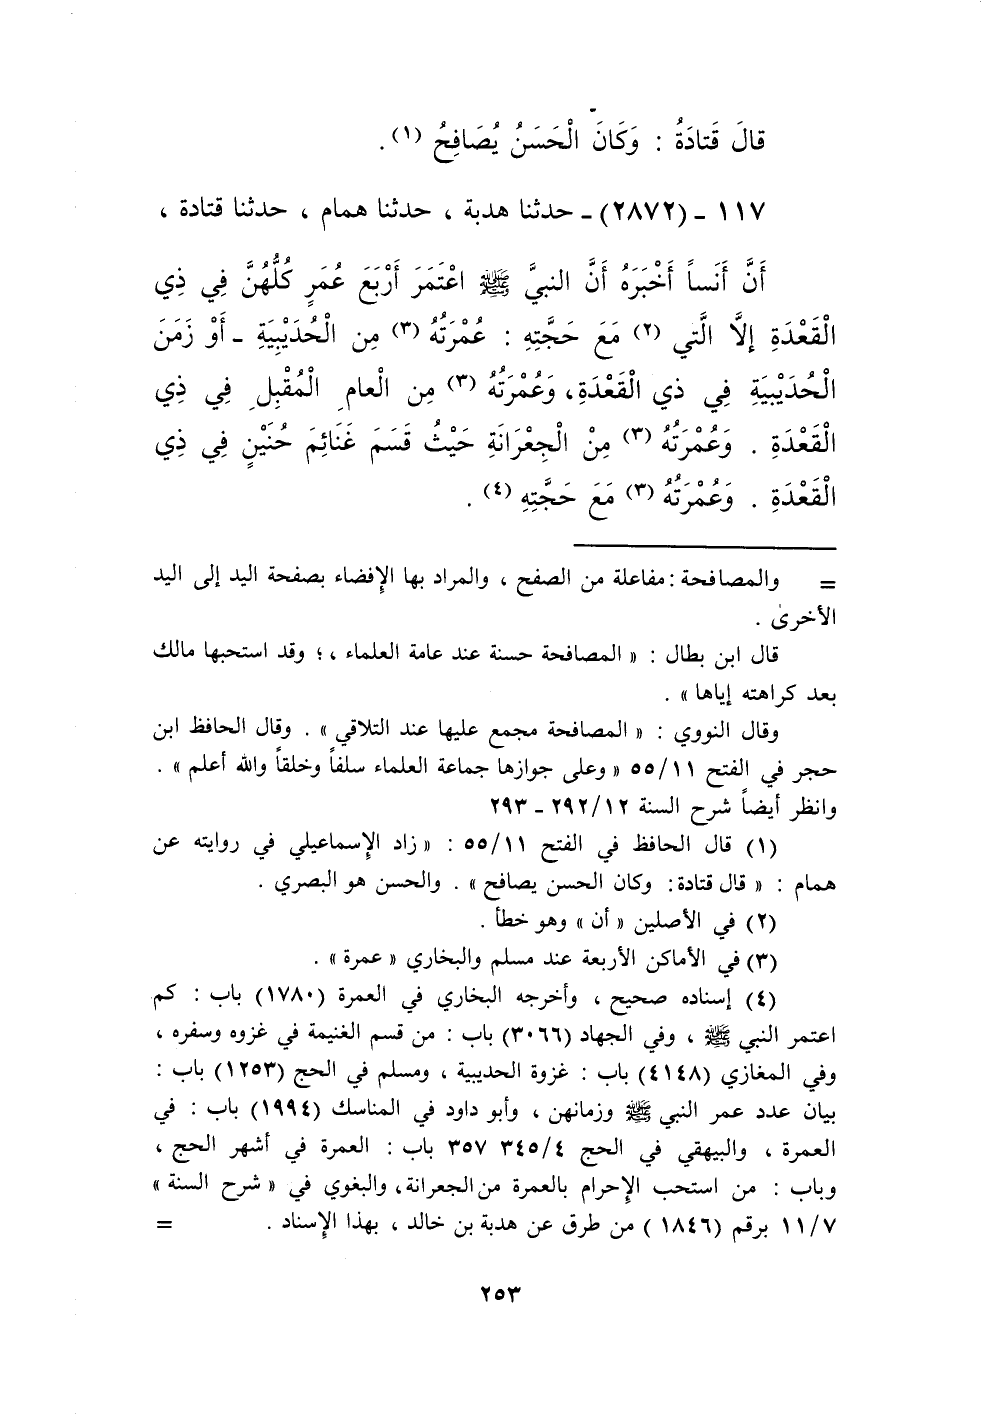 قالَ قَتادَةُ : وَكَانَ الْحَسَنُ يُصَافِحُ (١) .
١١٧ ـ (٢٨٧٢) ـ حدثنا هدبة ، حدثنا همام ، حدثنا قتادة ،
أَنَّ أَنَساً أَخْبَرَهُ أَنَّ النبيَّ ﷺ اعْتَمَرَ أَرْبَعَ عُمَرٍ كُلُّهُنَّ فِي ذِي
الْقَعْدَةِ إلَّا الَّتي (٢) مَعَ حَجَّتِهِ : عُمْرَتُهُ (٣) مِن الْحُدَيْبِيَةِ ـ أَوْ زَمَنَ
الْحُدَيْبِيَةِ فِي ذي الْقَعْدَةِ، وَعُمْرَتُهُ (٣) مِن الْعام ِ الْمُقْبِل ِ فِي ذِي
الْقَعْدَةِ . وَعُمْرَتُهُ (٣) مِنْ الْجِعْرَانَةِ حَيْثُ قَسَمَ غَنَائِمَ حُنَيْنٍ فِي ذِي
الْقَعْدَةِ . وَعُمْرَتُهُ (٣) مَعَ حَجَّتِهِ (٤) .
= والمصافحة : مفاعلة من الصفح ، والمراد بها الإفضاء بصفحة اليد إلى اليد
الأخرىٰ .
قال ابن بطال : « المصافحة حسنة عند عامة العلماء ،؛ وقد استحبها مالك
بعد كراهته إياها » .
وقال النووي : « المصافحة مجمع عليها عند التلاقي » . وقال الحافظ ابن
حجر في الفتح ١١/٥٥ « وعلى جوازها جماعة العلماء سلفاً وخلقاً والله أعلم » .
وانظر أيضاً شرح السنة ١٢/٢٩٢ ـ ٢٩٣
(١) قال الحافظ في الفتح ١١/٥٥ : « زاد الإسماعيلي في روايته عن
همام : « قال قتادة: وكان الحسن يصافح » . والحسن هو البصري .
(٢) في الأصلين « أن » وهو خطأ .
(٣) في الأماكن الأربعة عند مسلم والبخاري « عمرة » .
(٤) إسناده صحيح ، وأخرجه البخاري في العمرة (١٧٨٠) باب : كم
اعتمر النبي ﷺ ، وفي الجهاد (٣٠٦٦) باب : من قسم الغنيمة في غزوه وسفره ،
وفي المغازي (٤١٤٨) باب : غزوة الحديبية ، ومسلم في الحج (١٢٥٣) باب :
بيان عدد عمر النبي ﷺ وزمانهن ، وأبو داود في المناسك (١٩٩٤) باب : في
العمرة ، والبيهقي في الحج ٤/٣٤٥ ٣٥٧ باب : العمرة في أشهر الحج ،
وباب : من استحب الإحرام بالعمرة من الجعرانة، والبغوي في « شرح السنة »
٧/١١ برقم (١٨٤٦) من طرق عن هدبة بن خالد ، بهذا الإسناد . =
٢٥٣